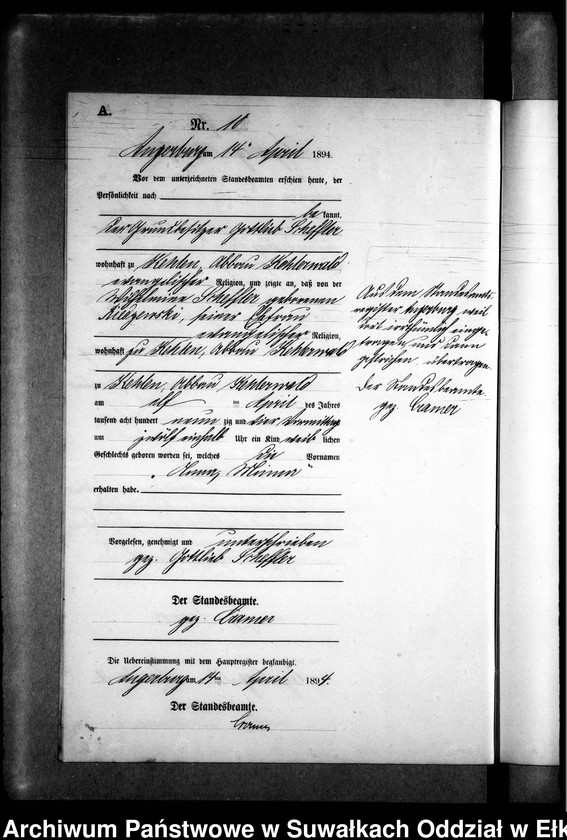 A.
Nr. 10
Angerburg am 14ten April 1894.
Vor dem unterzeichneten Standesbeamten erschien heute, der
Persönlichkeit nach
be kannt,
der Grundbesitzer Gottlieb Scheffler
wohnhaft zu Kehlen, Abbau Kehlerwald
evangelischer Religion, und zeigte an, daß von der
Wilhelmine Scheffler geborenen
seiner Ehefrau
evangelischer Religion,
wohnhaft zu Kehlen, Abbau Kehlerwald
zu Kehlen, Abbau Kehlerwald
am elf ten April des Jahres
tausend acht hundert neun zig und vier Vormittag
um zwölf einhalb Uhr ein Kind weib lichen
Geschlechts geboren worden sei, welches die Vornamen
„ Minna "
erhalten habe.
Vorgelesen, genehmigt und unterschrieben
gez. Gottlieb Scheffler
Der Standesbeamte.
gez. Cramer
Die Uebereinstimmung mit dem Hauptregister beglaubigt.
Angerburg am 14ten April 1894.
Der Standesbeamte.
Cramer
Aus dem Standesamts-
register Angerburg, weil
dort irrthümlich einge-
tragen und dann
gestrichen, übertragen.
Der Standesbeamte
gez. Cramer
Archiwum Państwowe w Suwałkach Oddział w Ełk